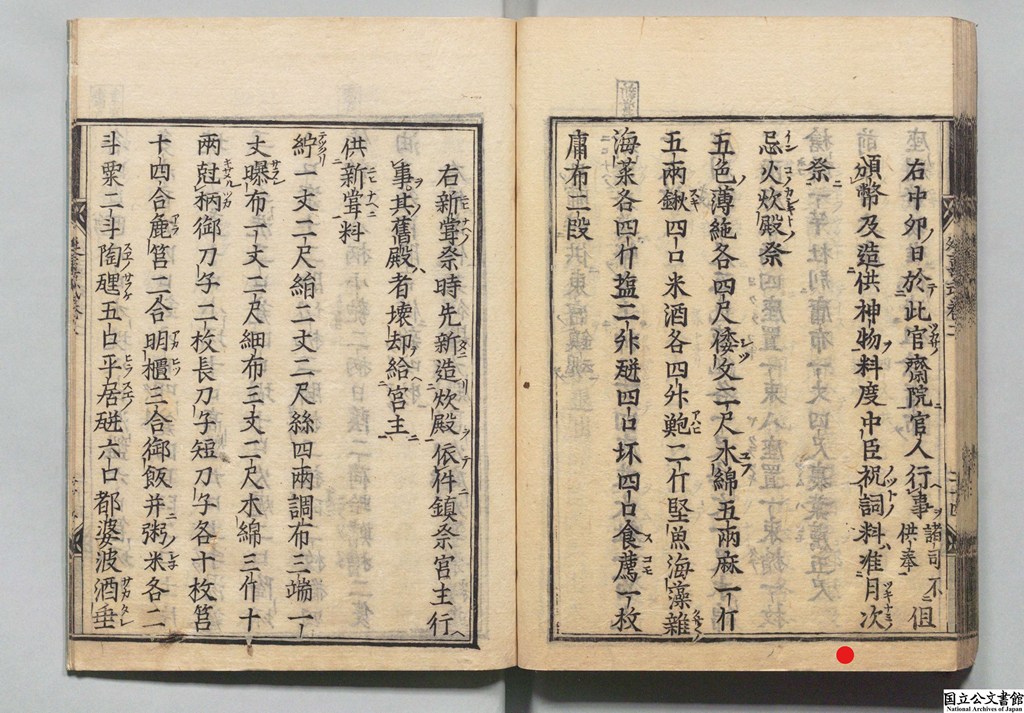 右中卯日於此官齋院官人行事諸司不供奉但
頒幣及造供神物料度中臣祝詞料准月次
祭
忌火炊殿祭
五色薄絁各四尺倭文二尺木綿五兩麻一斤
五兩鍬四口米酒各四升鰒二斤堅魚海藻雜
海菜各四斤塩二升瓼四口坏四口食薦一枚
庸布二段
右新嘗祭時先新造炊殿依件鎮祭宮主行
事其舊殿者壊却給宮主
供新嘗料
紵一丈二尺絹二丈二尺絲四兩調布三端一
丈曝布一丈二尺細布三丈二尺木綿三斤十
兩尅柄御刀子二枚長刀子短刀子各十枚筥
十四合麁筥二合明櫃三合御飯并粥米各二
斗粟二斗陶瓼五口平居瓼六口都婆波酒垂
国立公文書館
National Archives of Japan